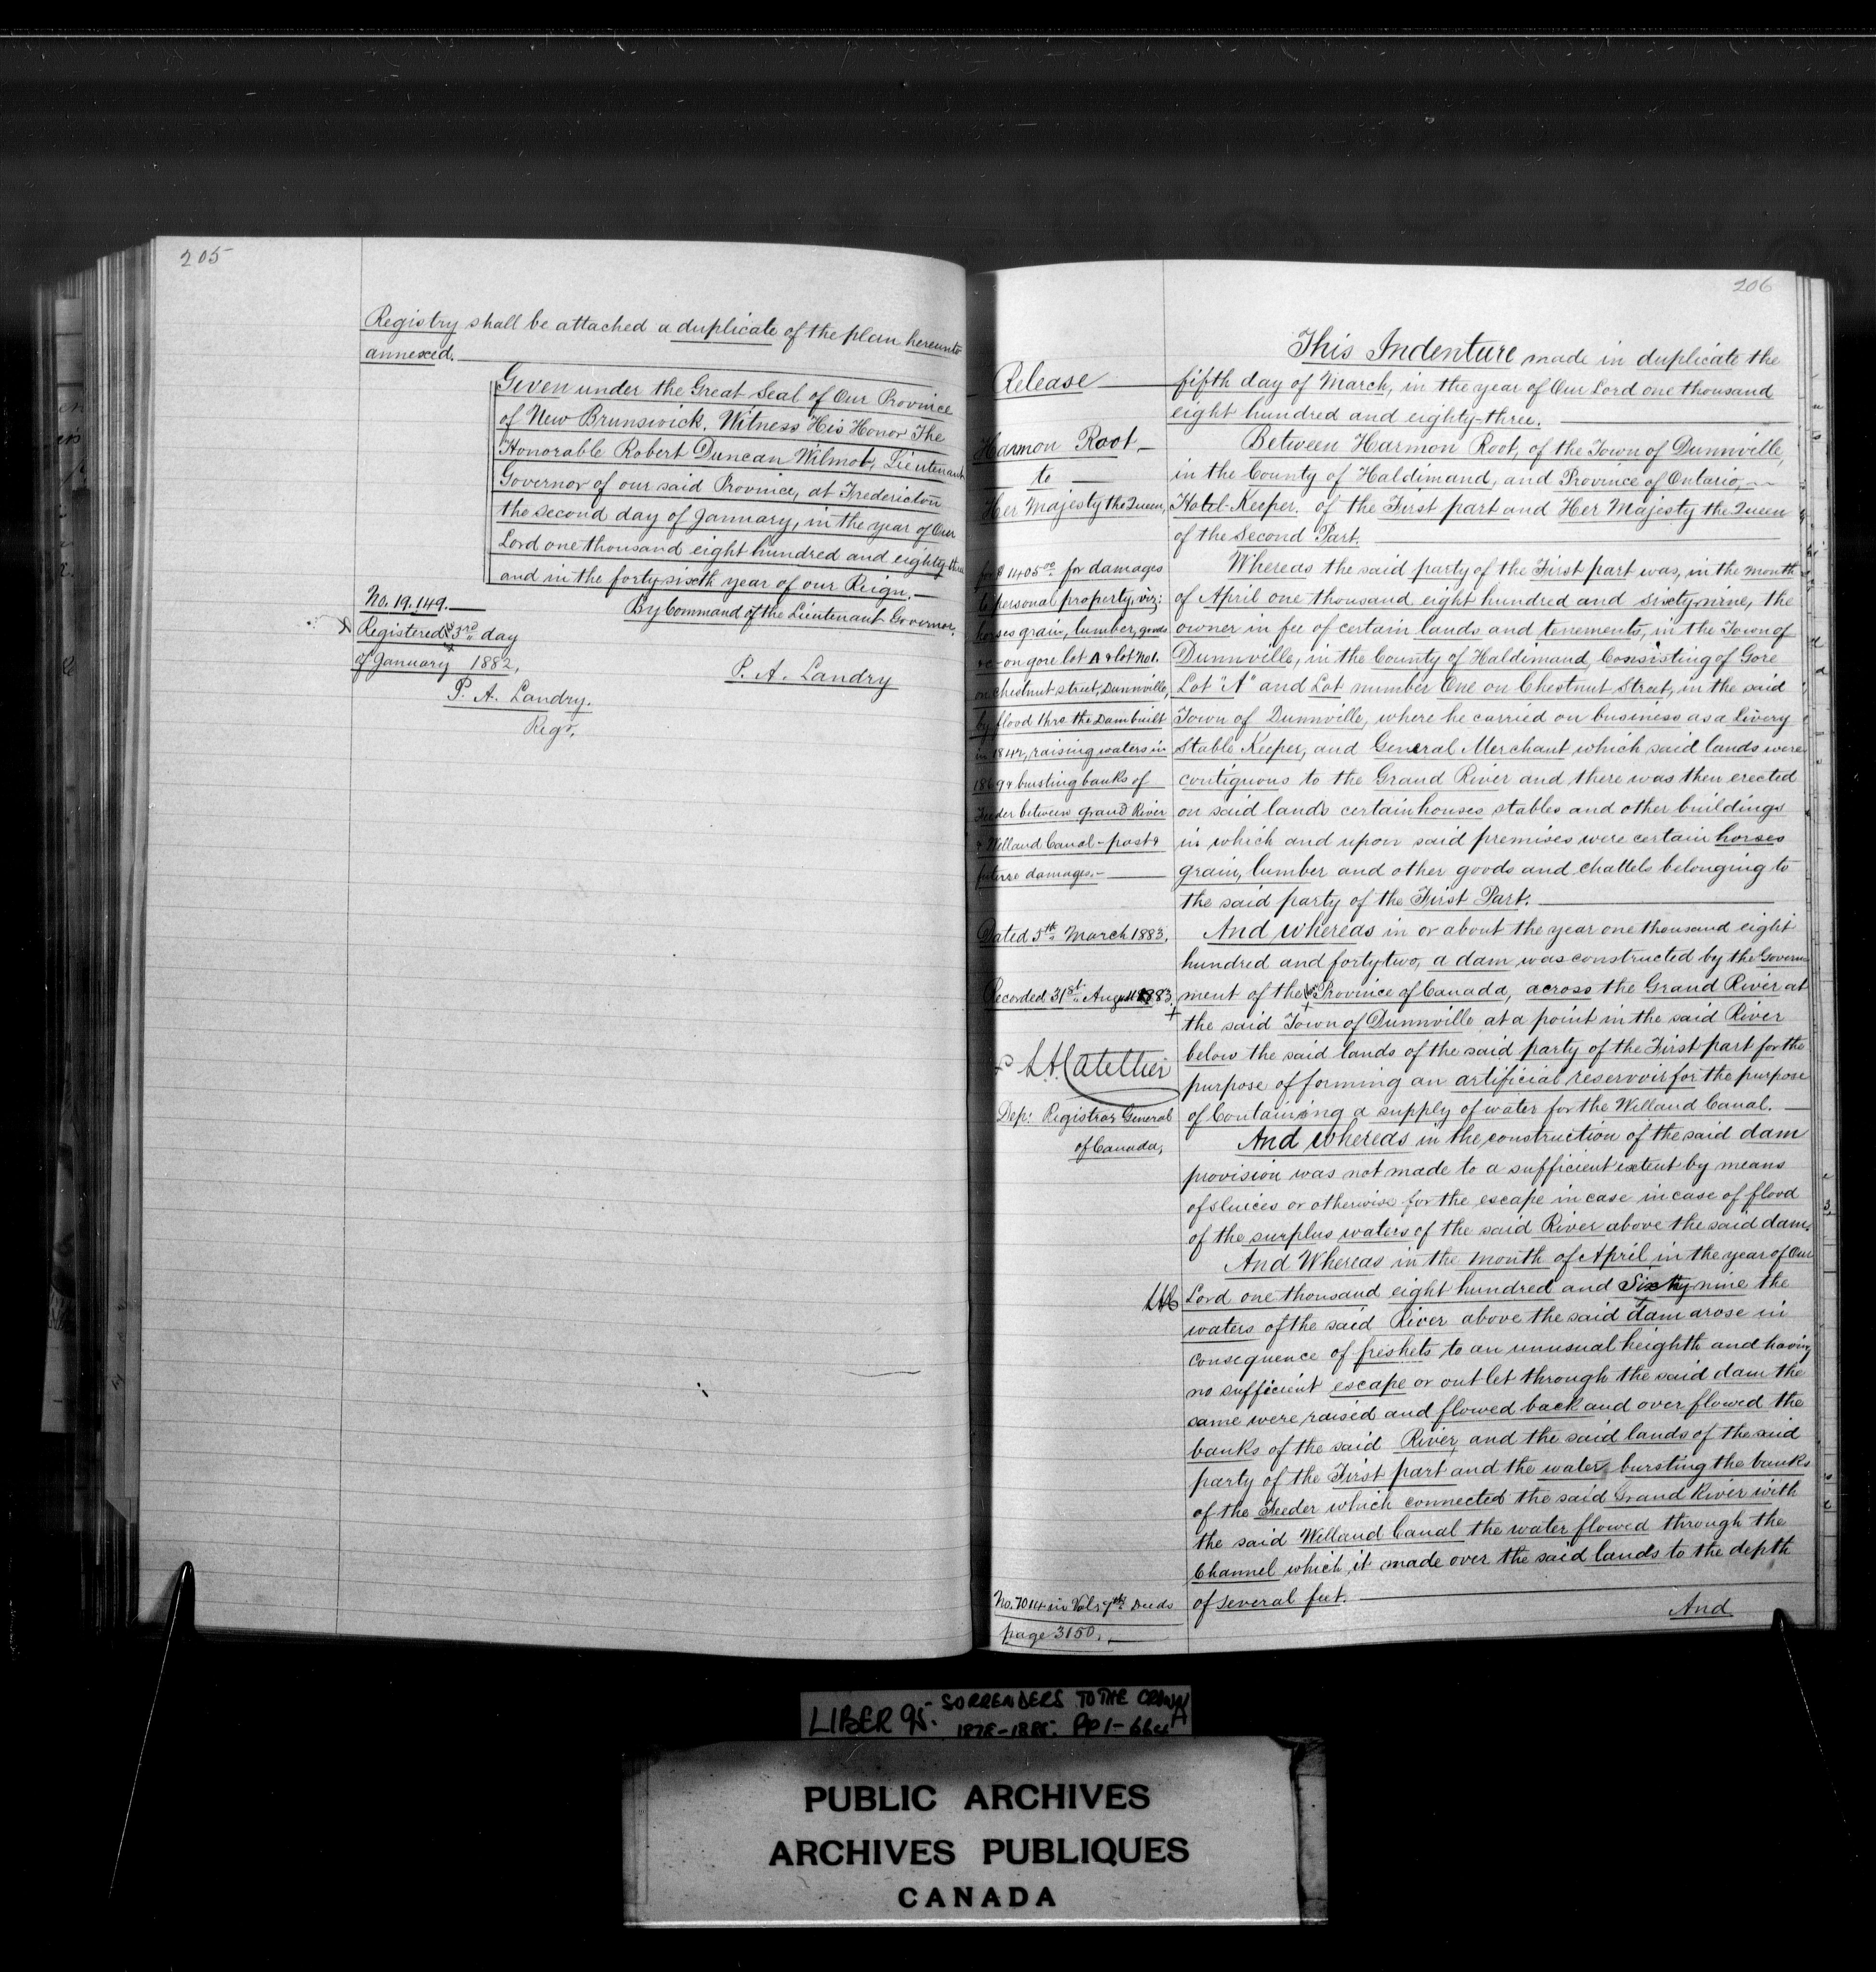 205
Registry shall be attached a duplicate of the plan hereunto
annexed.
Given under the Great Seal of Our Province
of New Brunswick. Witness His Honor The
Honorable Robert Duncan Wilmot, Lieutenant
Governor of our said Province, at Fredericton
the second day of January, in the year of Our
Lord one thousand eight hundred and eighty-three
and in the forty-sixth year of our Reign.
By Command of the Lieutenant Governor.
No. 19.149.
Registered 3rd day
of January 1882,
P. A. Landry.
Regr.
P. A. Landry
206
Release
Harmon Root
to
Her Majesty the Queen,
for $1405.00 for damages
to personal property, viz:
horses grain, lumber, goods
&c - on gore lot A & lot No 1.
on Chestnut street, Dunnville,
by flood thro the Dam built
in 1842, raising waters in
1869 & bursting banks of
Feeder between Grand River
& Welland Canal - past &
future damages.
Dated 5th March 1883.
Recorded 31st August 1883.
Dep: Registrar General
of Canada,
No. 7014 in Vol:
Deeds
page 3150.
This Indenture made in duplicate the
fifth day of March, in the year of Our Lord one thousand
eight hundred and eighty-three.
Between Harmon Root, of the Town of Dunnville,
in the County of Haldimand, and Province of Ontario,
Hotel-Keeper. of the First part and Her Majesty the Queen
of the Second Part.
Whereas the said party of the First part was, in the month
of April one thousand eight hundred and sixty-nine, the
owner in fee of certain lands and tenements, in the Town of
Dunnville, in the County of Haldimand, Consisting of Gore
Lot "A" and Lot number One on Chestnut Street, in the said
Town of Dunnville, where he carried on business as a Livery
Stable Keeper, and General Merchant which said lands were
contiguous to the Grand River and there was then erected
on said lands certain houses stables and other buildings
in which and upon said premises were certain horses
grain, lumber and other goods and chattels belonging to
the said party of the First Part.
And whereas in or about the year one thousand eight
hundred and forty two, a dam was constructed by the Govern
ment of the Province of Canada, across the Grand River at
the said Town of Dunnville at a point in the said River
below the said lands of the said party of the First part for the
purpose of forming an artificial reservoir for the purpose
of Containing a supply of water for the Welland Canal.
And whereas in the construction of the said dam
provision was not made to a sufficient extent by means
of sluices or otherwise for the escape in case in case of flood
of the surplus waters of the said River above the said dam.
And Whereas in the month of April in the year of Our
Lord one thousand eight hundred and Sixty nine the
waters of the said River above the said dam arose in
consequence of freshets to an unusual heighth and having
no sufficient escape or outlet through the said dam the
same were raised and flowed back and over flowed the
banks of the said River, and the said lands of the said
party of the First part and the water bursting the banks
of the Feeder which connected the said Grand River with
the said Welland Canal the water flowed through the
Channel which it made over the said lands to the depth
of several feet.
And
LIBER 95. SURRENDERS TO THE CROWN
1878-1885. PP 1-664
PUBLIC ARCHIVES
ARCHIVES PUBLIQUES
CANADA